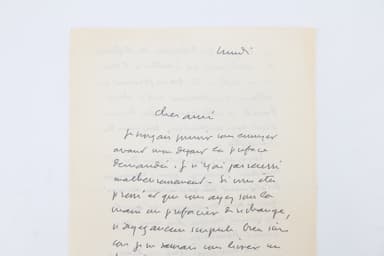 lundi
cher ami
Je pensais pouvoir vous envoyer
avant mon départ la préface
demandée. Je n'y ai pas réussi
malheureusement. Si vous êtes
pressé et que vous ayez sous la
main un préfacier de rechange,
n'ayez aucun scrupule
car je ne saurais vous livrer